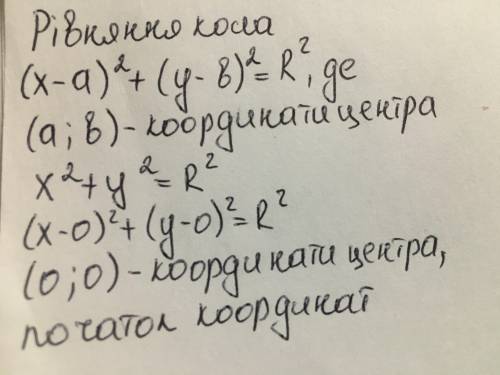 Рівняння кола
(x-a)²+(y-b)²=R², де
(a;b)-координати центра
x²+y²=R²
(x-0)²+(y-0)²=R²
(0;0)-координати центра,
початок координат